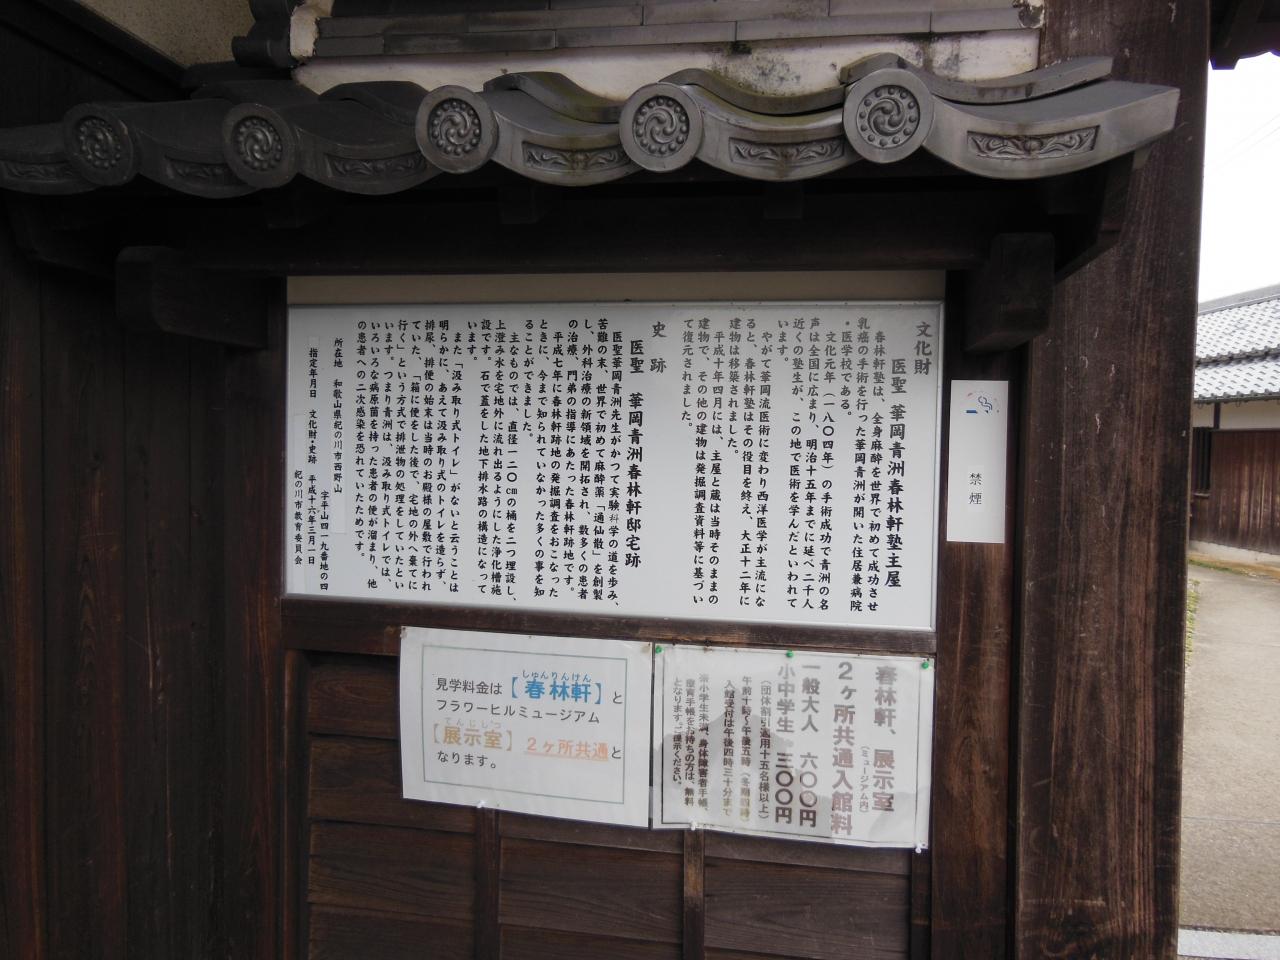 文化財
医聖 華岡青洲春林軒塾主屋
春林軒塾は、全身麻酔を世界で初めて成功させ
乳癌の手術を行った華岡青洲が開いた住居兼病院
・医学校である。
文化元年（一八〇四年）の手術成功で青洲の名
声は全国に広まり、明治十五年までに延べ二千人
近くの塾生が、この地で医術を学んだといわれて
います。
やがて華岡流医術に変わり西洋医学が主流にな
ると、春林軒塾はその役目を終え、大正十二年に
建物は移築されました。
平成十年四月には、主屋と蔵は当時そのままの
建物で、その他の建物は発掘調査資料等に基づい
て復元されました。
史跡
医聖 華岡青洲春林軒邸宅跡
医聖華岡青洲先生がかつて実験科学の道を歩み、
苦難の末、世界で初めて麻酔薬「通仙散」を創製
し、外科治療の新領域を開拓され、数多くの患者
の治療、門弟の指導にあたった春林軒跡地です。
平成七年に春林軒跡地の発掘調査をおこなった
ときに、今まで知られていなかった多くの事を知
ることができました。
主なものでは、直径一二〇cmの桶を二つ埋設し、
上澄み水を宅地外に流れ出るようにした浄化槽施
設です。石で蓋をした地下排水路の構造になって
います。
また「汲み取り式トイレ」がないと云うことは
明らかに、あえて汲み取り式のトイレを造らず、
排尿、排便の始末は当時のお殿様の屋敷で行われ
ていた、「箱に便をした後で、宅地の外へ棄てに
行く」という方式で排泄物の処理をしていたとい
います。つまり青洲は、汲み取り式トイレでは、
いろいろな病原菌を持った患者の便が溜まり、他
の患者への二次感染を恐れていたためです。
所在地 和歌山県紀の川市西野山
字平山四一九番地の四
指定年月日 文化財・史跡 平成十六年三月一日
紀の川市教育委員会
禁煙
春林軒、展示室
（ミュージアム内）
2ヶ所共通入館料
一般大人 六〇〇円
小中学生 三〇〇円
（団体割引適用十五名様以上）
午前十時〜午後五時（冬期四時）
入館受付は午後四時三十分まで
※小学生未満、身体障害者手帳、
療育手帳をお持ちの方は、無料
となります。ご提示ください。
見学料金は【春林軒】と
しゅんりんけん
フラワーヒルミュージアム
てんじしつ
【展示室】2ヶ所共通と
なります。